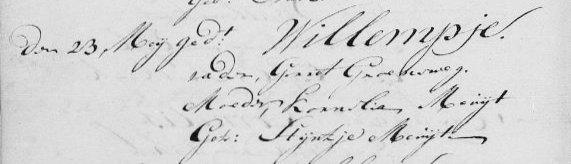 Den 23 Meÿ ged:t Willempje.
vader, Gerret Groeneweg.
Moeder, Kornelia Meuijt
Get: Stijntje Meuijt